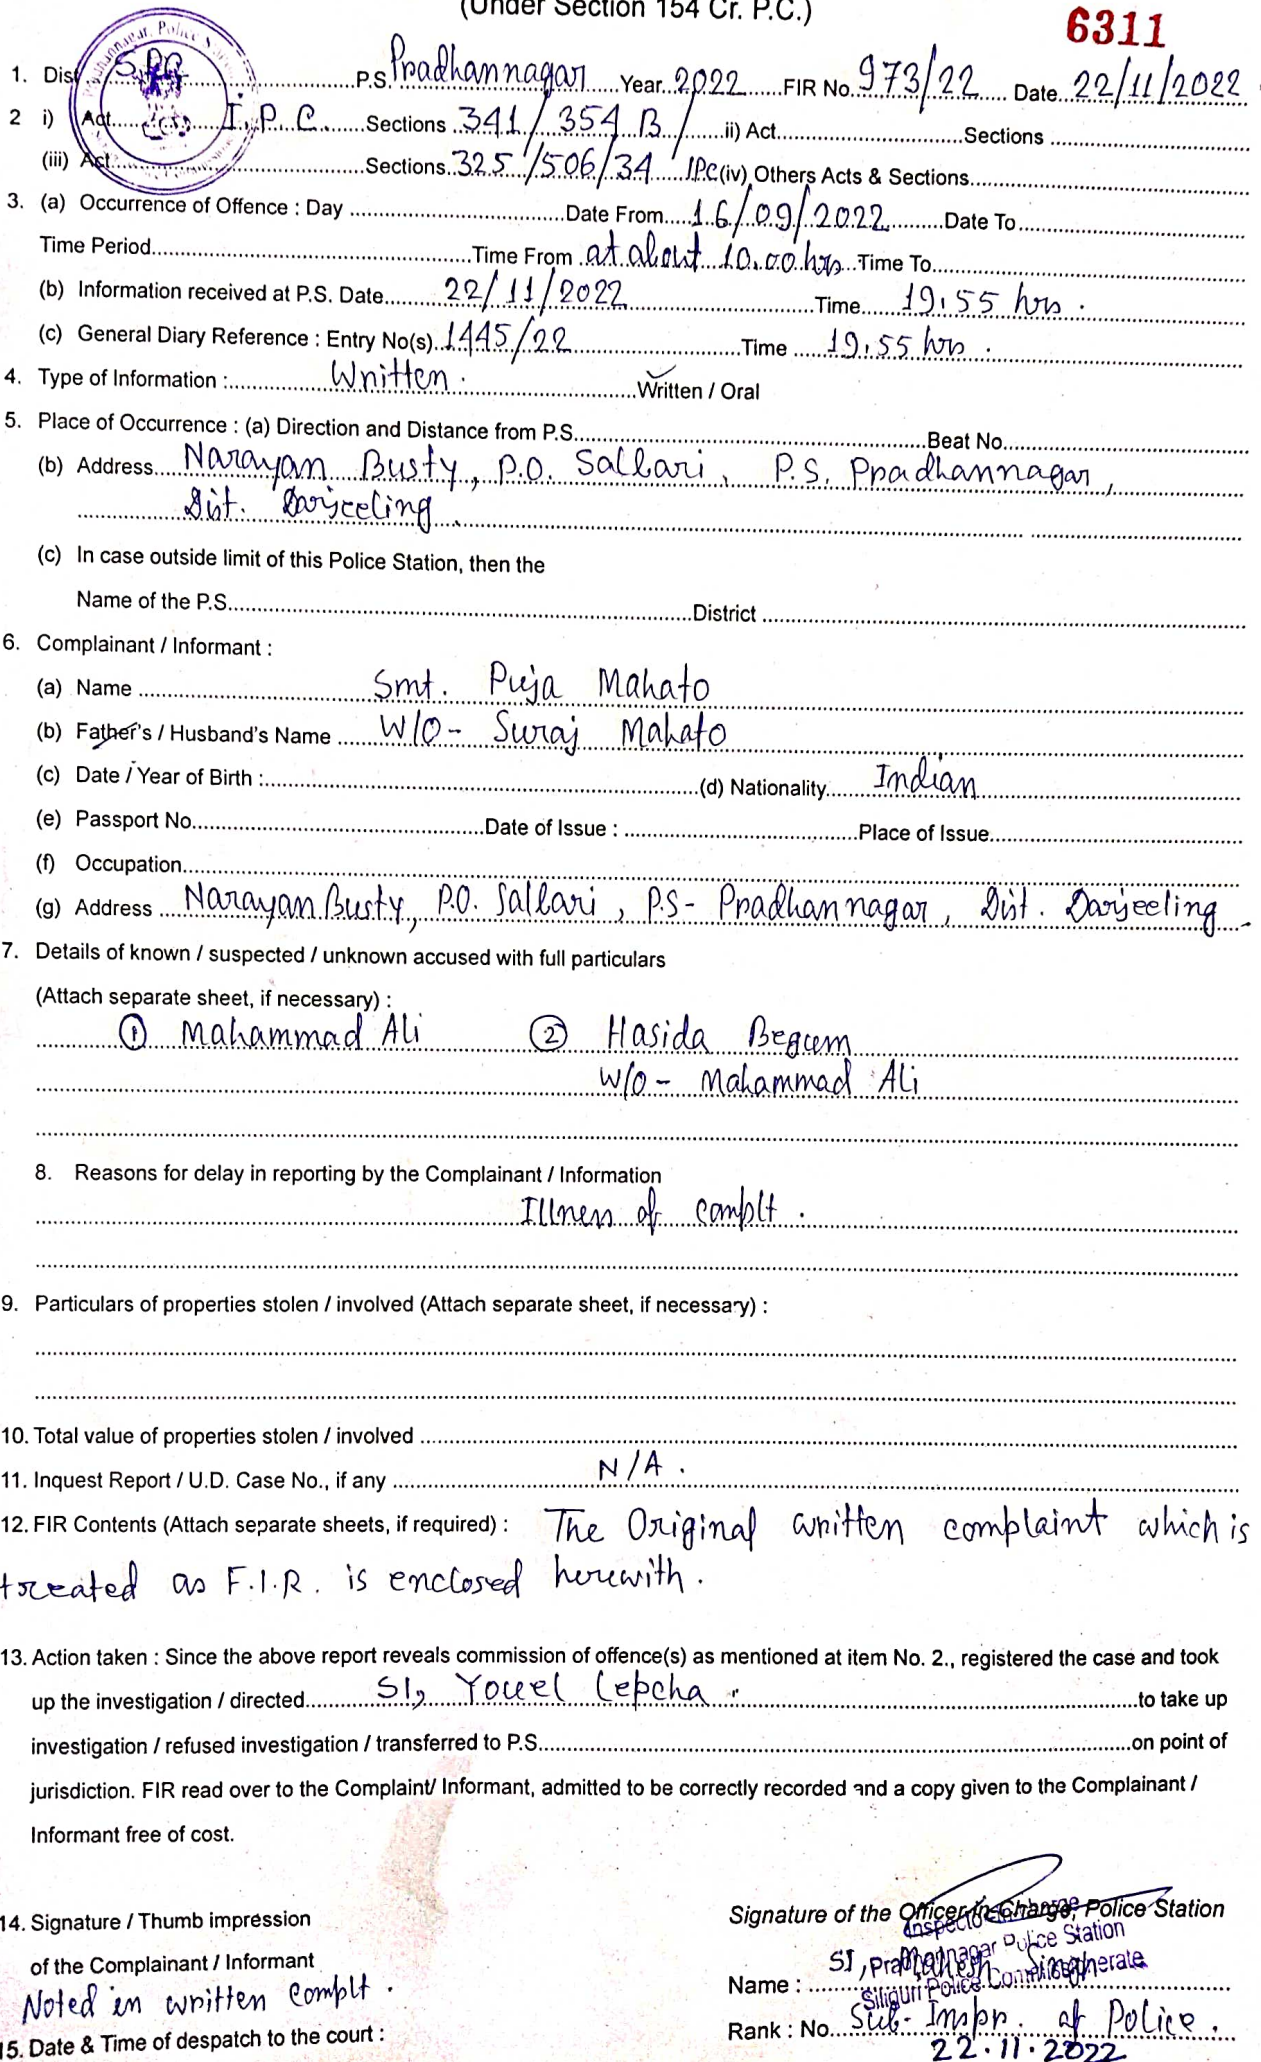 (Under Section 154 Cr. P.C.)
6311
1. Dist. SPC P.S. Pradhannagar Year 2022 FIR No. 973/22 Date 22/11/2022
2 i) Act I.P.C. Sections 341/354 B/ ii) Act Sections
(iii) Act Sections 325/506/34 IPC (iv) Others Acts & Sections
3. (a) Occurrence of Offence : Day Date From 16/09/2022 Date To
Time Period Time From at about 10.00 hrs Time To
(b) Information received at P.S. Date 22/11/2022 Time 19.55 hrs.
(c) General Diary Reference : Entry No(s). 1445/22 Time 19.55 hrs.
4. Type of Information : Written. Written / Oral
5. Place of Occurrence : (a) Direction and Distance from P.S. Beat No.
(b) Address Narayan Busty, P.O. Sallari, P.S. Pradhannagar,
Dist. Darjeeling.
(c) In case outside limit of this Police Station, then the
Name of the P.S. District
6. Complainant / Informant :
(a) Name Smt. Puja Mahato
(b) Father's / Husband's Name W/O- Suraj Mahato
(c) Date / Year of Birth : (d) Nationality Indian
(e) Passport No. Date of Issue : Place of Issue
(f) Occupation
(g) Address Narayan Busty, P.O. Sallari, P.S- Pradhannagar, Dist. Darjeeling.
7. Details of known / suspected / unknown accused with full particulars
(Attach separate sheet, if necessary) :
① Mahammad Ali ② Hasida Begum
W/O- Mahammad Ali
8. Reasons for delay in reporting by the Complainant / Information
Illness of complt.
9. Particulars of properties stolen / involved (Attach separate sheet, if necessary) :
10. Total value of properties stolen / involved
11. Inquest Report / U.D. Case No., if any N/A.
12. FIR Contents (Attach separate sheets, if required) : The Original written complaint which is
treated as F.I.R. is enclosed herewith.
13. Action taken : Since the above report reveals commission of offence(s) as mentioned at item No. 2., registered the case and took
up the investigation / directed SI, Youel Lepcha to take up
investigation / refused investigation / transferred to P.S. on point of
jurisdiction. FIR read over to the Complaint/ Informant, admitted to be correctly recorded and a copy given to the Complainant /
Informant free of cost.
14. Signature / Thumb impression
Signature of the Officer In-Charge, Police Station
of the Complainant / Informant
Police Station
Noted in written complt.
Name : SI,
Siliguri Police
15. Date & Time of despatch to the court :
Rank : No. Sub- Inspr. of Police.
22.11.2022